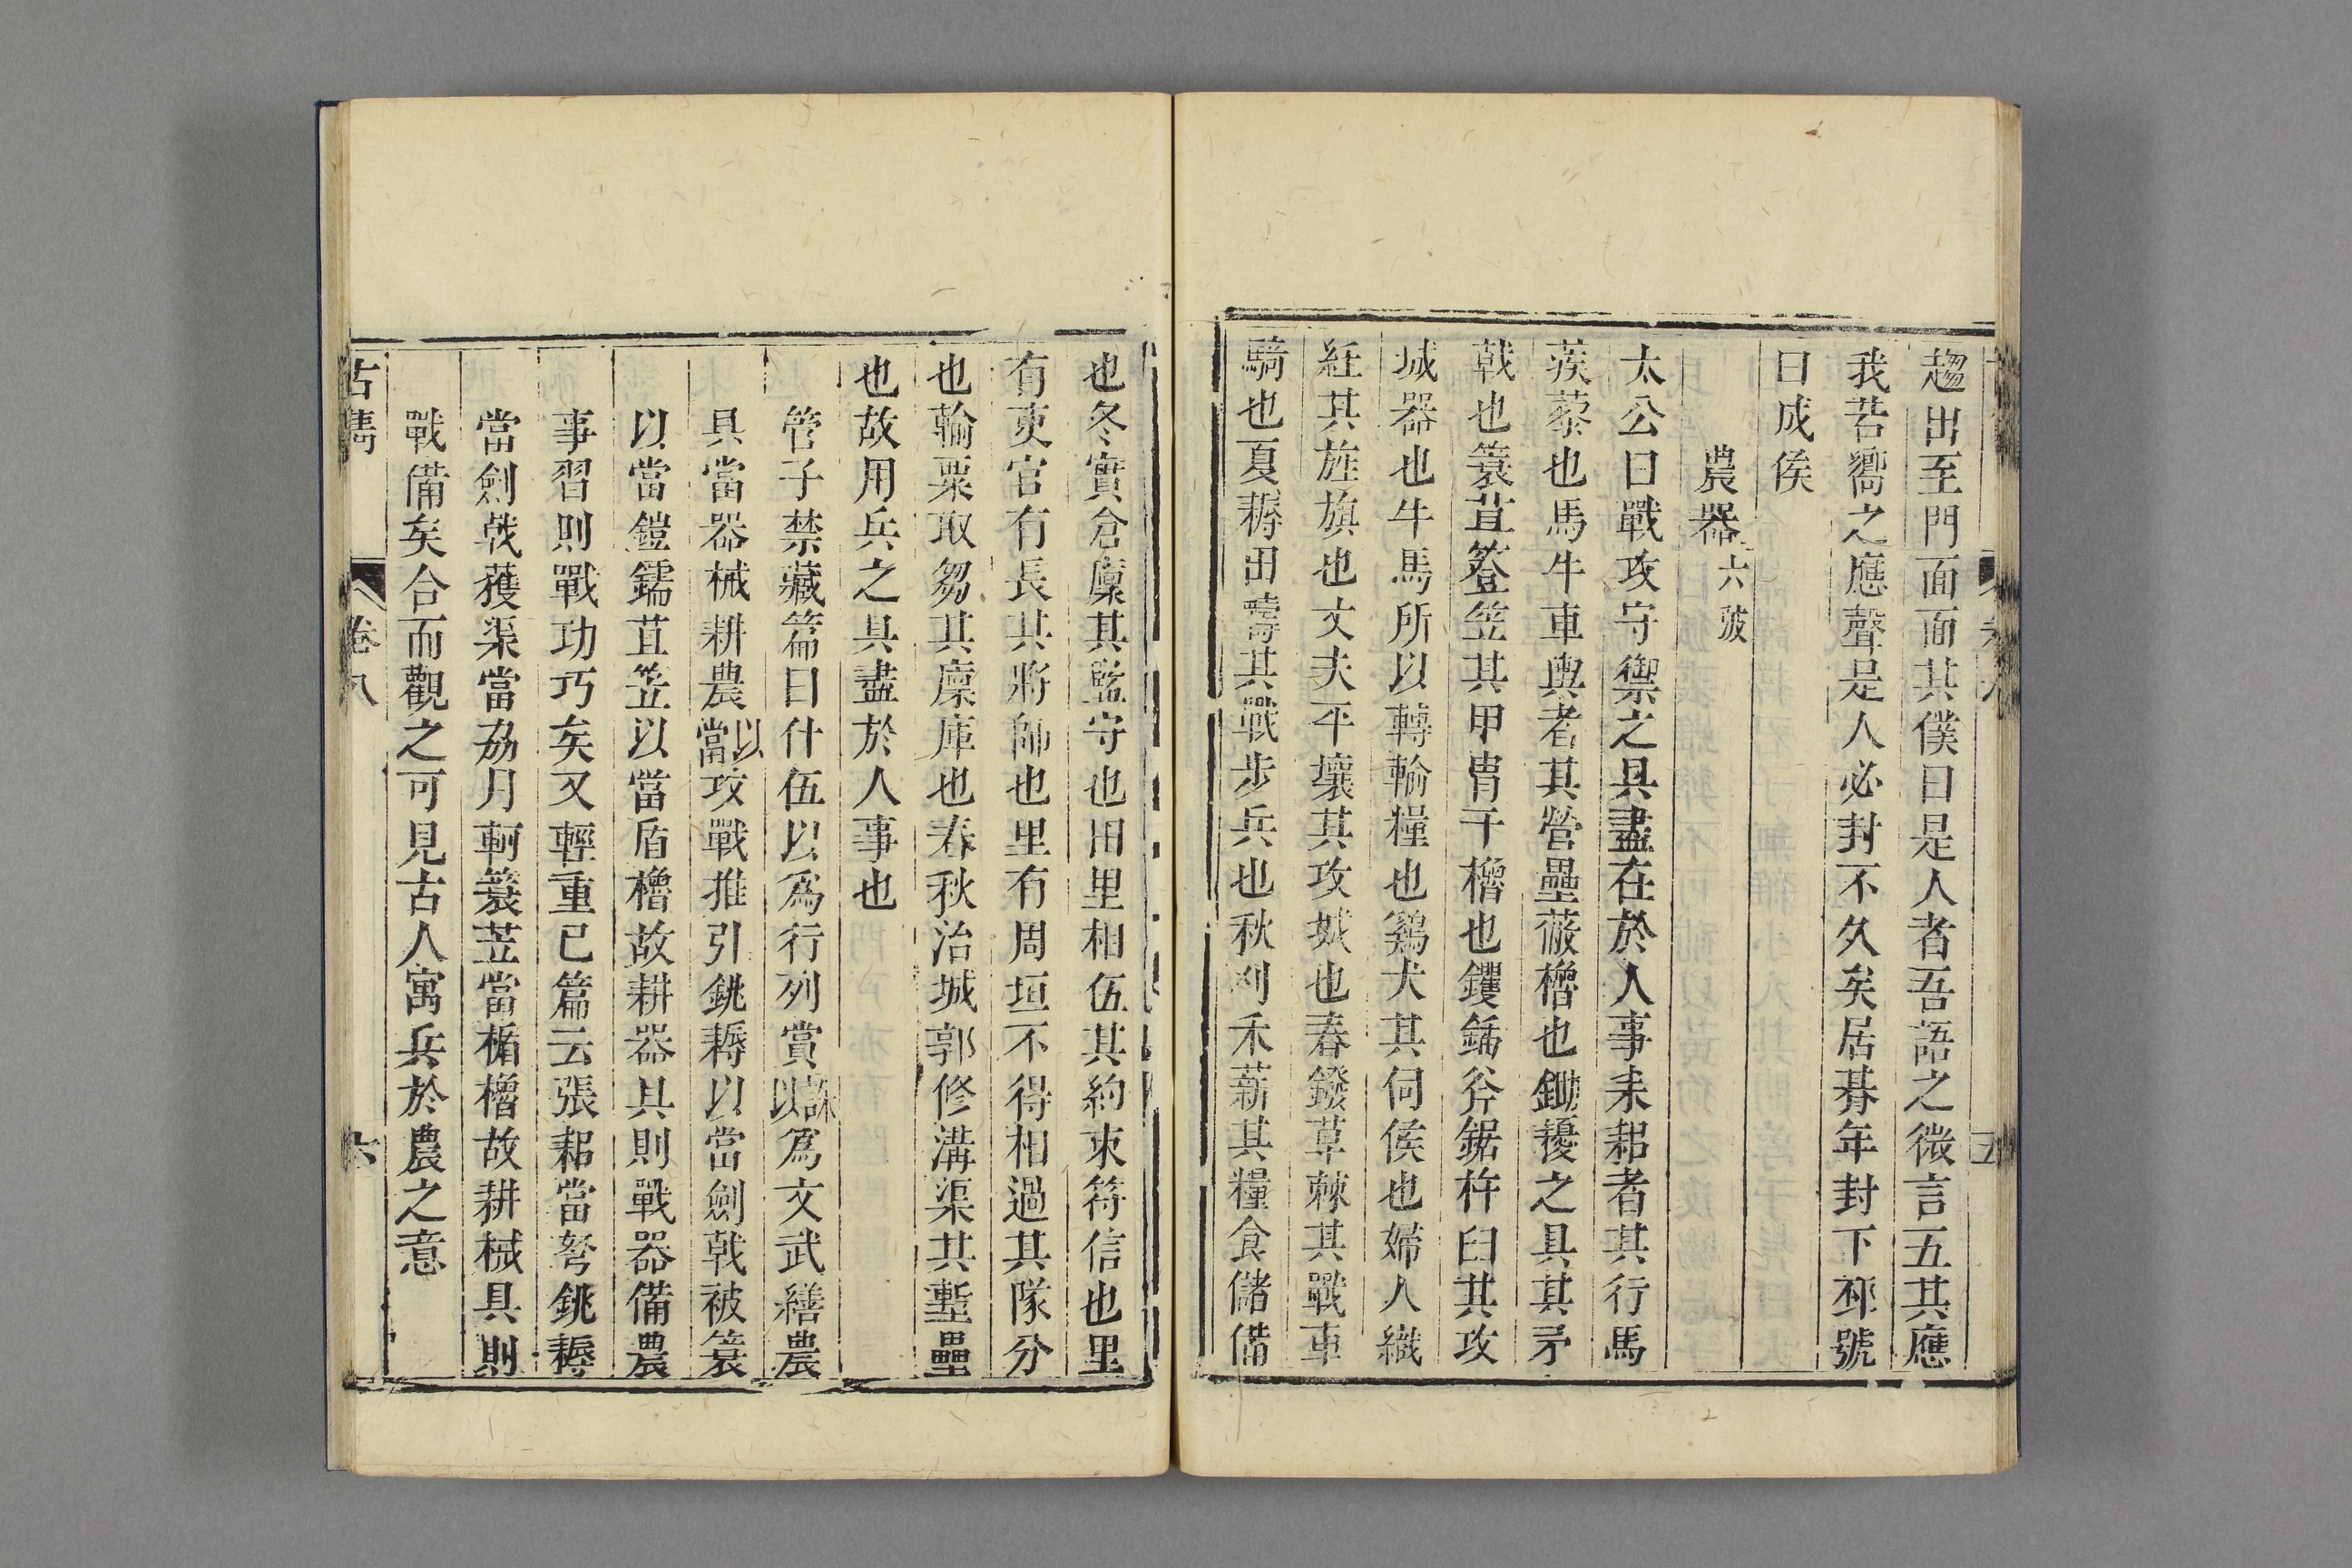 趨出至門面面其僕曰是人者吾語之微言五其應
我若嚮之應聲是人必封不久矣居朞年封下邳號
曰成侯
農器六韜
太公曰戰攻守禦之具盡在於人事耒耜者其行馬
蒺藜也馬牛車輿者其營壘蔽櫓也鋤耰之具其矛
戟也簑苴簦笠其甲冑干櫓也钁鍤斧鋸杵臼其攻
城器也牛馬所以轉輸糧也鷄犬其伺候也婦人織
紝其旌旗也丈夫平壤其攻城也春鏺草棘其戰車
騎也夏耨田疇其戰步兵也秋刈禾薪其糧食儲備
也冬實倉廩其監守也田里相伍其約束符信也里
有吏官有長其將帥也里有周垣不得相過其隊分
也輸粟取芻其廩庫也春秋治城郭修溝渠其塹壘
也故用兵之具盡於人事也
管子禁藏篇曰什伍以爲行列賞誅以爲文武繕農
具當器械耕農以當攻戰推引銚耨以當劍戟被簑
以當鎧鑐苴笠以當盾櫓故耕器具則戰器備農
事習則戰功巧矣又輕重已篇云張耜當弩銚耨
當劍戟穫渠當劦月軻簑苙當楯櫓故耕械具則
戰備矣合而觀之可見古人寓兵於農之意
古雋
卷八
六
五